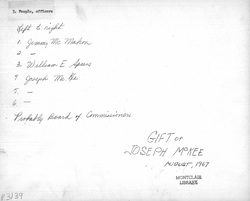 3. People, officers
Left to right
1 James Mc Mahon
2 —
3 William E Speers
4 Joseph McKee
5 —
6 —
Probably Board of Commissioners
GIFT OF
JOSEPH McKEE
AUGUST, 1967
MONTCLAIR
LIBRARY